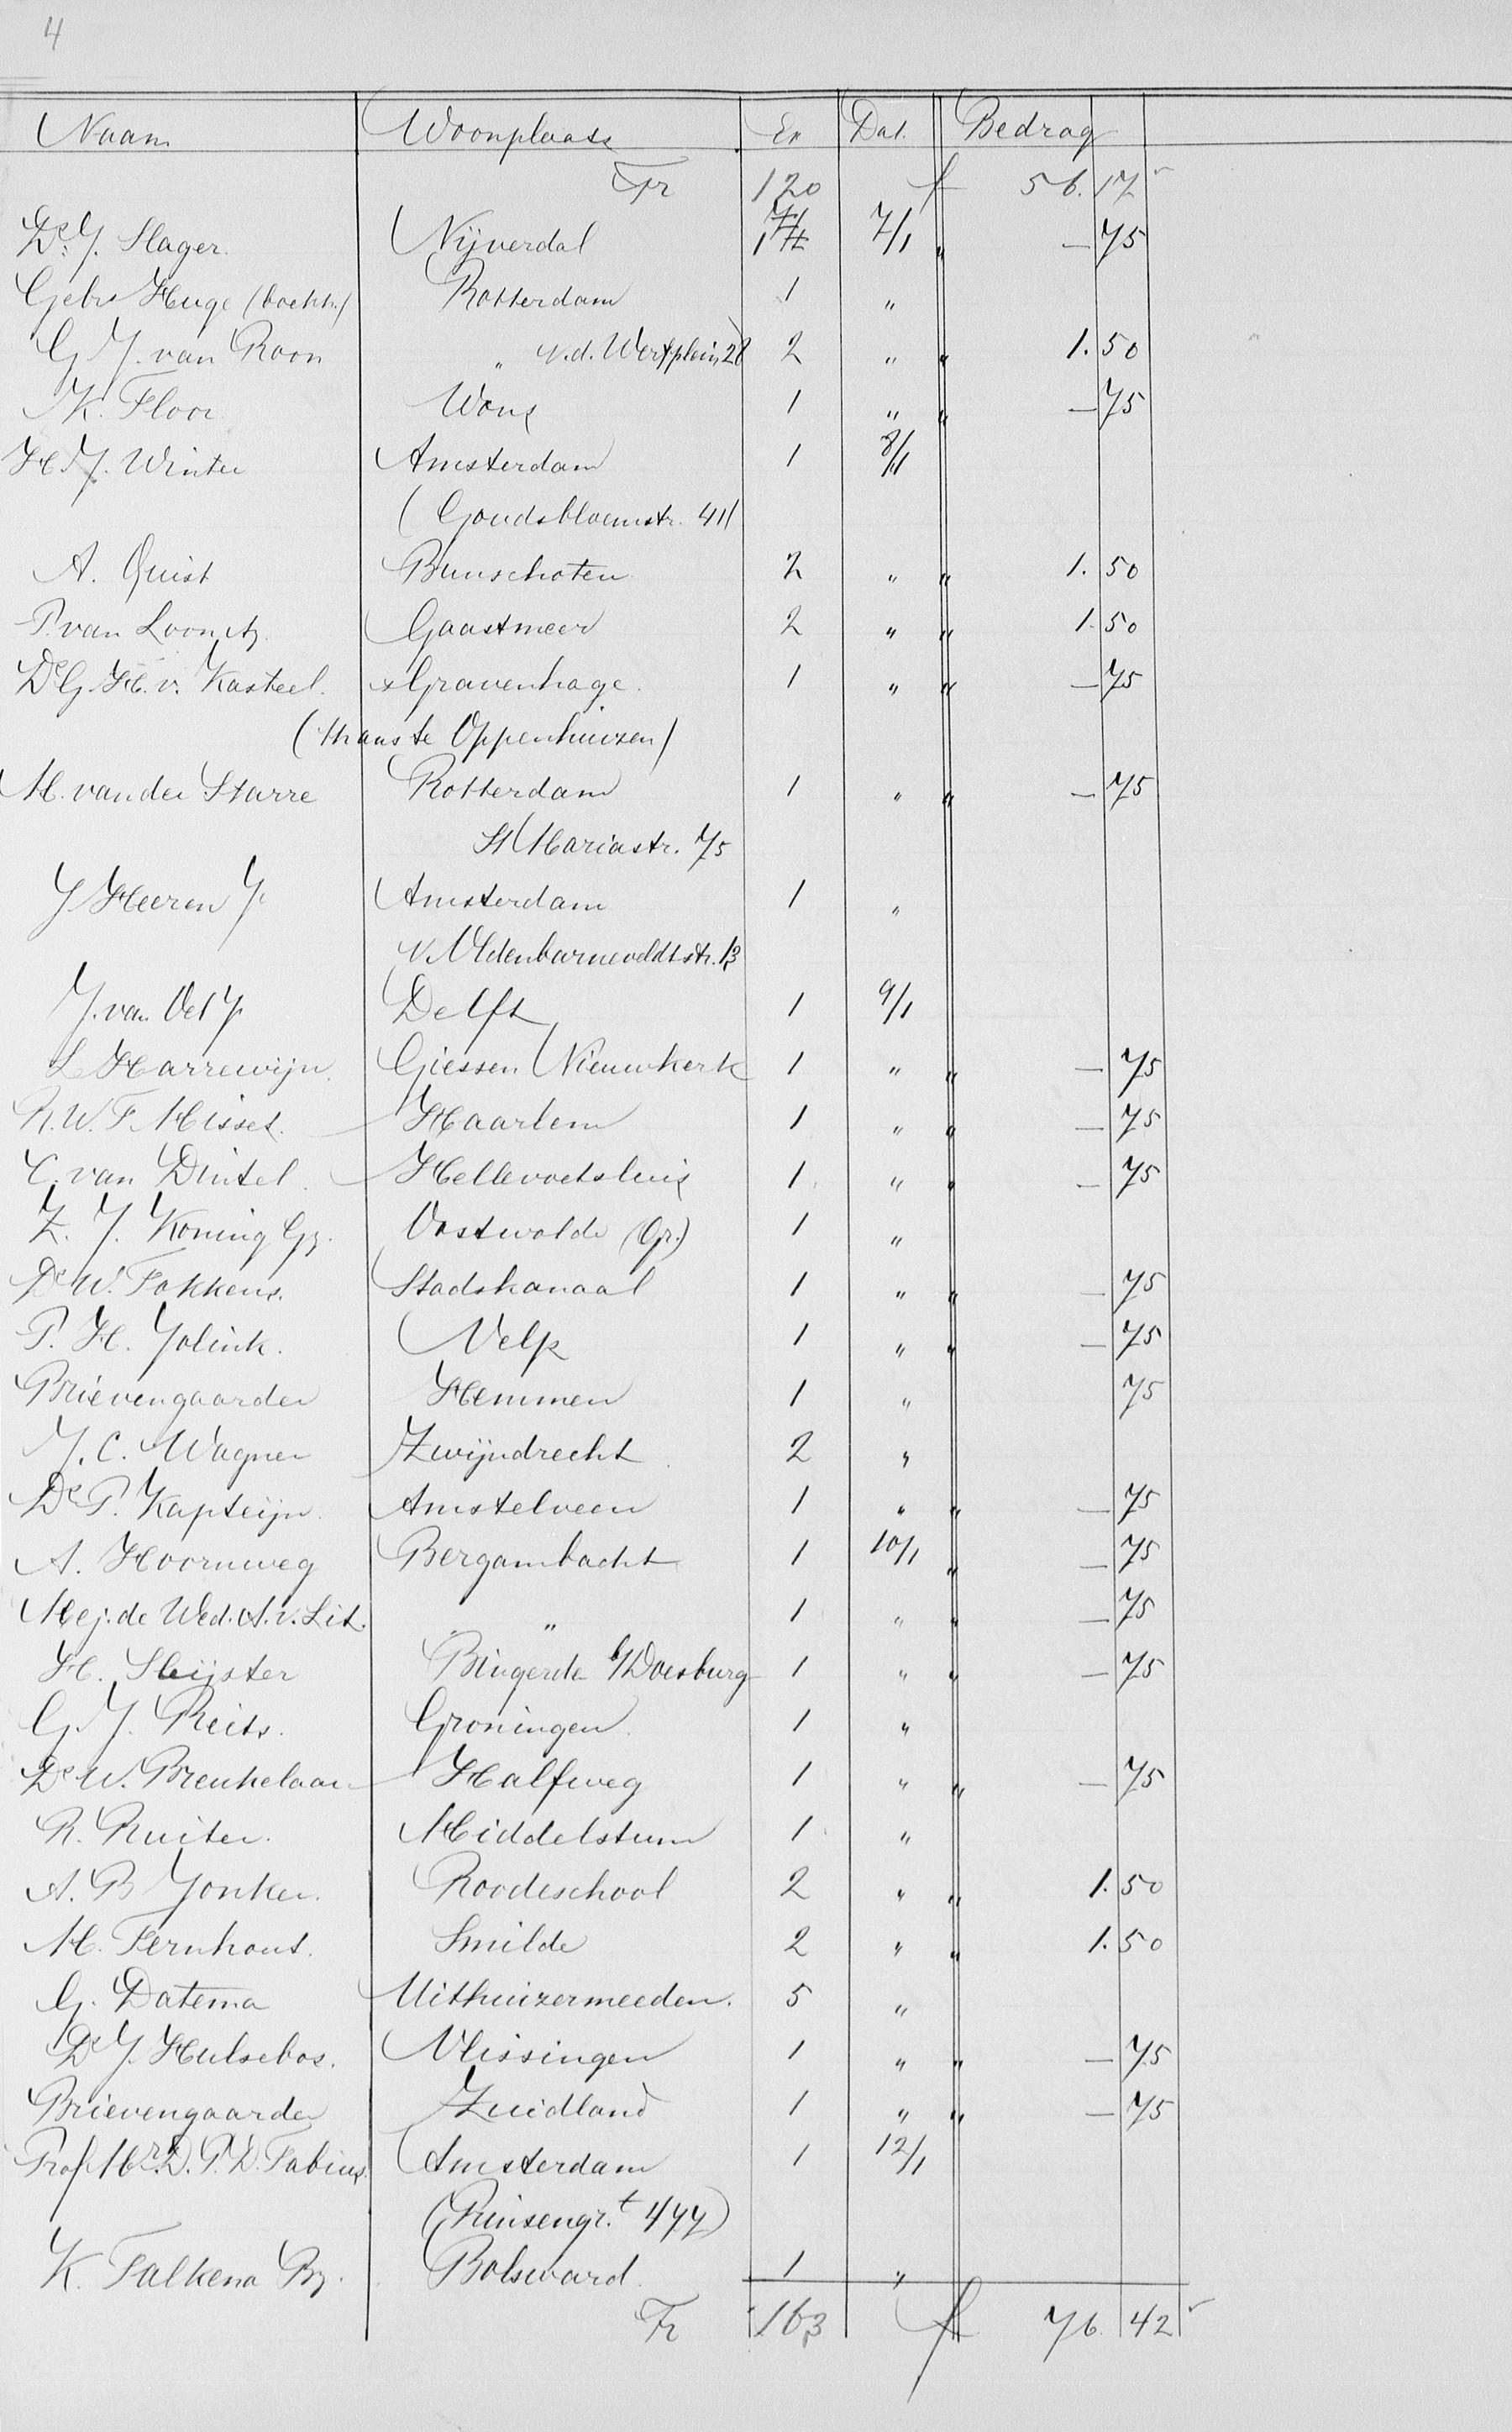 4
Naam Woonplaats Ex Dat. Bedrag
Tr 120 f 56. 17
Ds J. Slager. Nijverdal 1 7/1 " — 75
Gebrs Huge (boekh.) Rotterdam 1 "
G J. van Roon " v.d. Werfplein 28 2 " " 1. 50
K. Floor Wons 1 " " — 75
H. J. Winter Amsterdam 1 8/1
(Goudsbloemstr. 41)
A. Quist Bunschoten 2 " " 1. 50
P. van Loon Az. Gaastmeer 2 " " 1. 50
Ds G. H. v. Kasteel. s Gravenhage. 1 " " — 75
(thans te Oppenhuizen)
M. van der Starre Rotterdam 1 " " — 75
St Mariastr. 75
J Heeren Jr Amsterdam 1 "
v. Oldenbarneveldtstr. 13
J. van Oel Jr Delft 1 9/1
L Harrewijn. Giessen Nieuwkerk 1 " " — 75
R. W. F. Misset. Haarlem 1 " " — 75
C. van Dintel. Hellevoetsluis 1 " " — 75
Z. J. Koning Gz. Oostwolde (Gr.) 1 "
Ds W. Fokkens. Stadskanaal 1 " " — 75
P. H. Jolink. Velp 1 " " — 75
Brievengaarder Hemmen 1 " 75
J. C. Wagner Zwijndrecht 2 "
Ds P. Kapteijn. Amstelveen 1 " " — 75
A. Hoornweg Bergambacht 1 10/1 " — 75
Mej. de Wed. A. v. Lit. " 1 " " — 75
H. Sleijster Bingerde b/Doesburg 1 " " — 75
G. J. Reits. Groningen. 1 "
Ds W. Breukelaar Halfweg 1 " " — 75
R. Ruiter. Middelstum 1 "
A. B Jonker. Roodeschool 2 " " 1. 50
M. Fernhout. Smilde 2 " " 1. 50
G. Datema Uithuizermeeden. 5 "
Ds J. Hulsebos. Vlissingen 1 " " — 75
Brievengaarder Zuidland 1 " " — 75
Prof Mr. D. P. D. Fabius. Amsterdam 1 12/1
(Prinsengr.t 477)
K. Falkena Bz. Bolsward. 1 "
Tr 163 f 76. 42